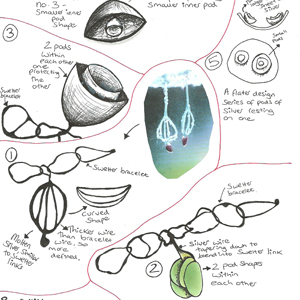 no. 3 -
Smaller inner
pod
shape.
Smaller inner pod
3
2 pods
Within
each other
one
protecting
the
other
Swetter
bracelet
5
Small
pods
A flater design
Series of pods of
Silver resting
on one.
1
Swetter bracelet
Curved
Shape
Thicker wire
than bracelet
wire, so
more
defined.
Molten
Silver
to swetter
links
Swetter
bracelet
Silver wire
tapering down to
blend into Swetter link
2
2 pod Shapes
Within
each other